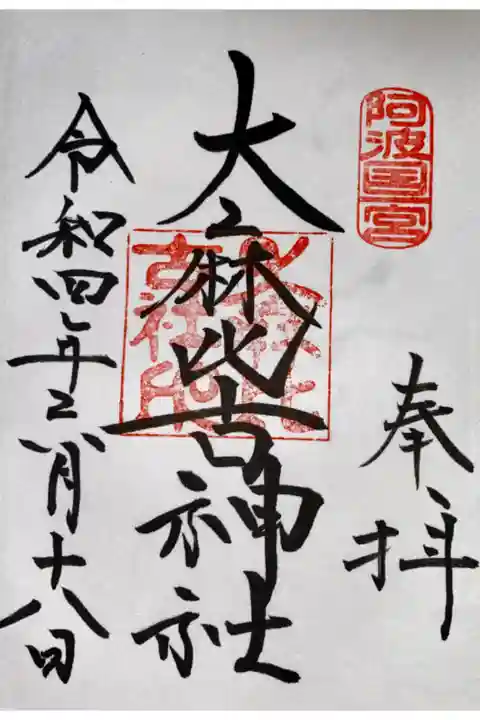 阿波国一宮
奉拝
大麻比古神社
大麻比
古社印
令和四年
月十八日